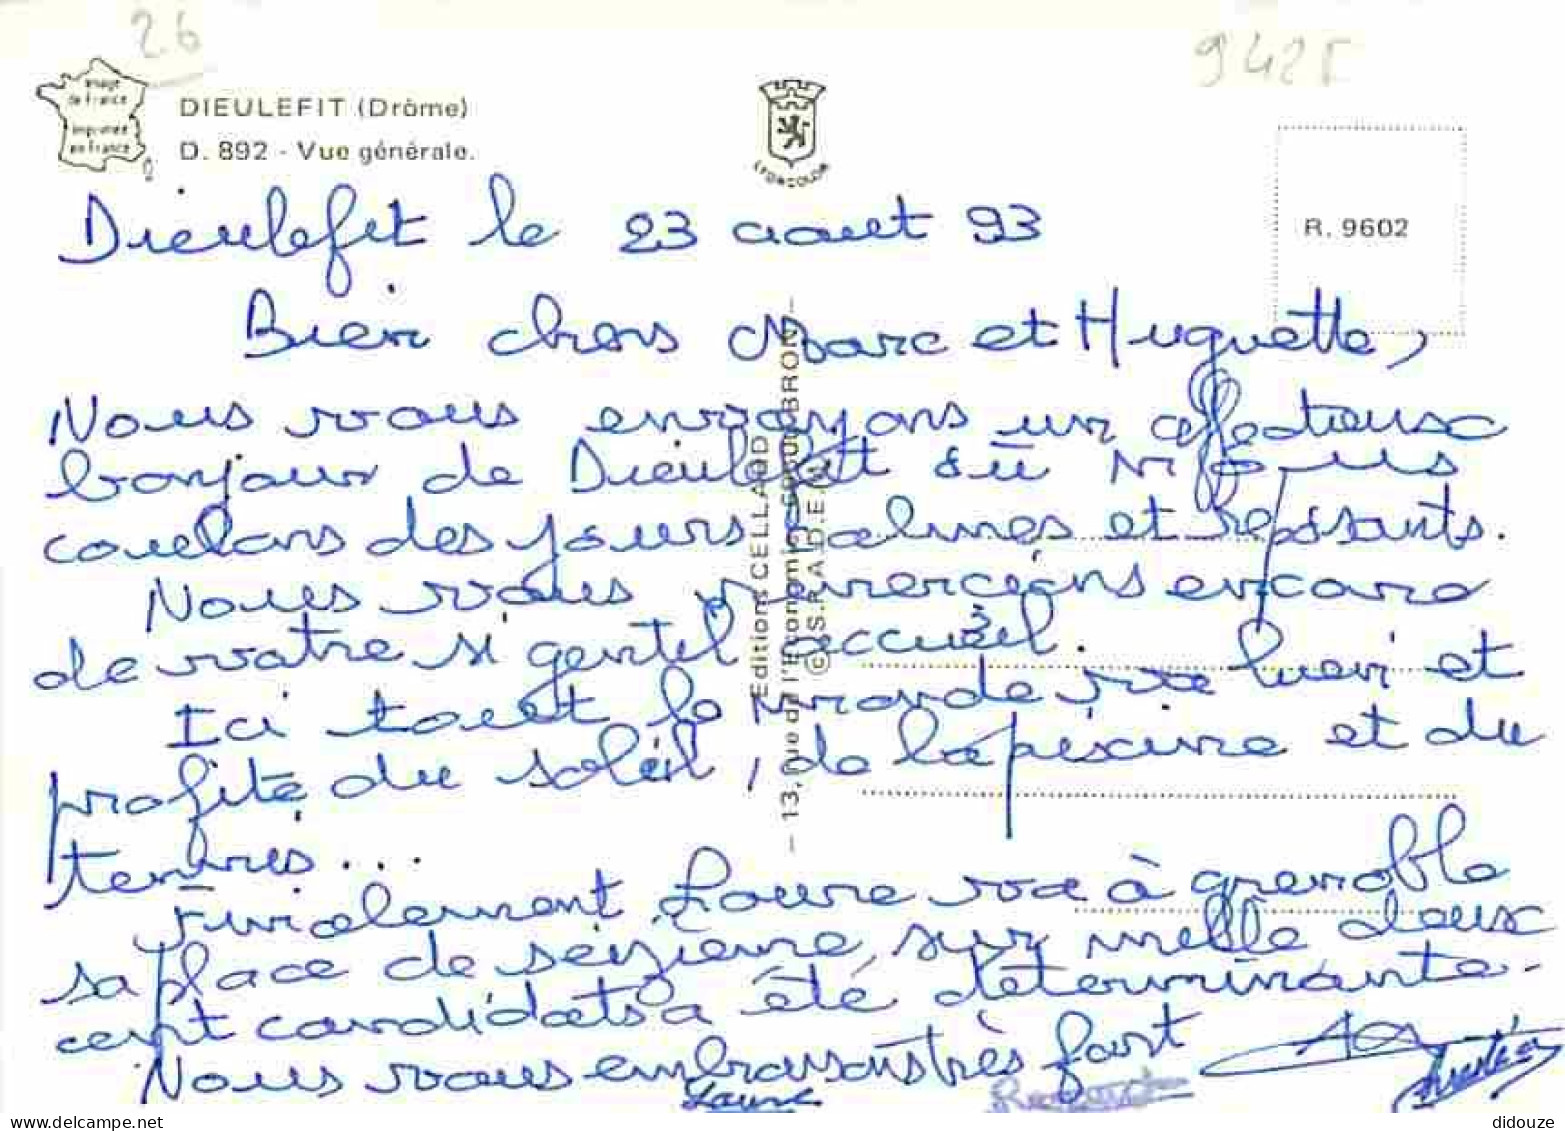 26
942F
image
de France
imprimée
en France
DIEULEFIT (Drôme)
D. 892 - Vue générale.
LYONCOLOR
R. 9602
Editions CELLARD
— 13, rue de l'Economie - BRON —
(c) S.P.A.D.E.M.
Dieulefit le 23 aout 93
Bien chers Marc et Huguette,
Nous vous envoyons un affectueux
bonjour de Dieulefit où nous
coulons des jours calmes et reposants.
Nous vous remercions encore
de votre si gentil accueil.
Ici tout le monde va bien et
profite du soleil, de la piscine et du
tennis...
Finalement Laure va à grenoble
sa place de seizième, sur mille deux
cent candidats a été déterminante.
Nous vous embrassons très fort
Laure
Romaric
didouze